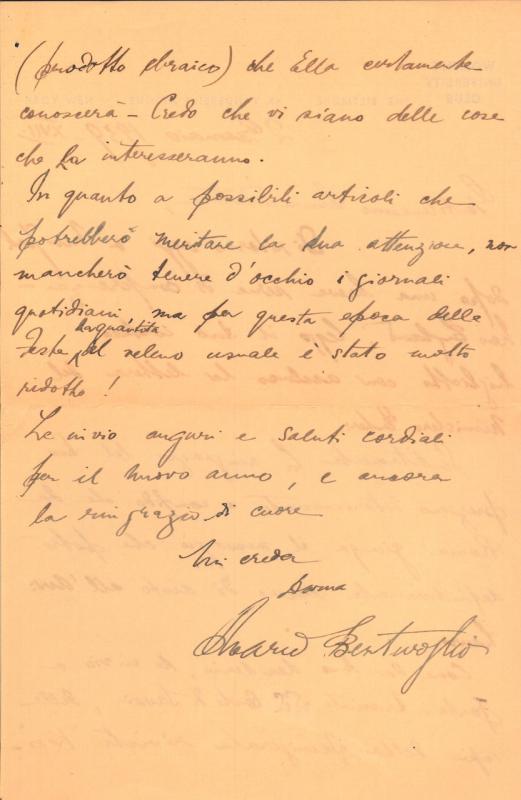 (prodotto ebraico) che Ella certamente
conoscerà – Credo che vi siano delle cose
che La interesseranno.
In quanto a possibili articoli che
potrebbero meritare la Sua attenzione, non
mancherò tenere d'occhio i giornali
quotidiani, ma per questa epoca delle
feste la quantità del veleno usuale è stato molto
ridotto!
Le invio auguri e saluti cordiali
per il nuovo anno, e ancora
la ringrazio di cuore
Mi creda
Mario Bentivoglio